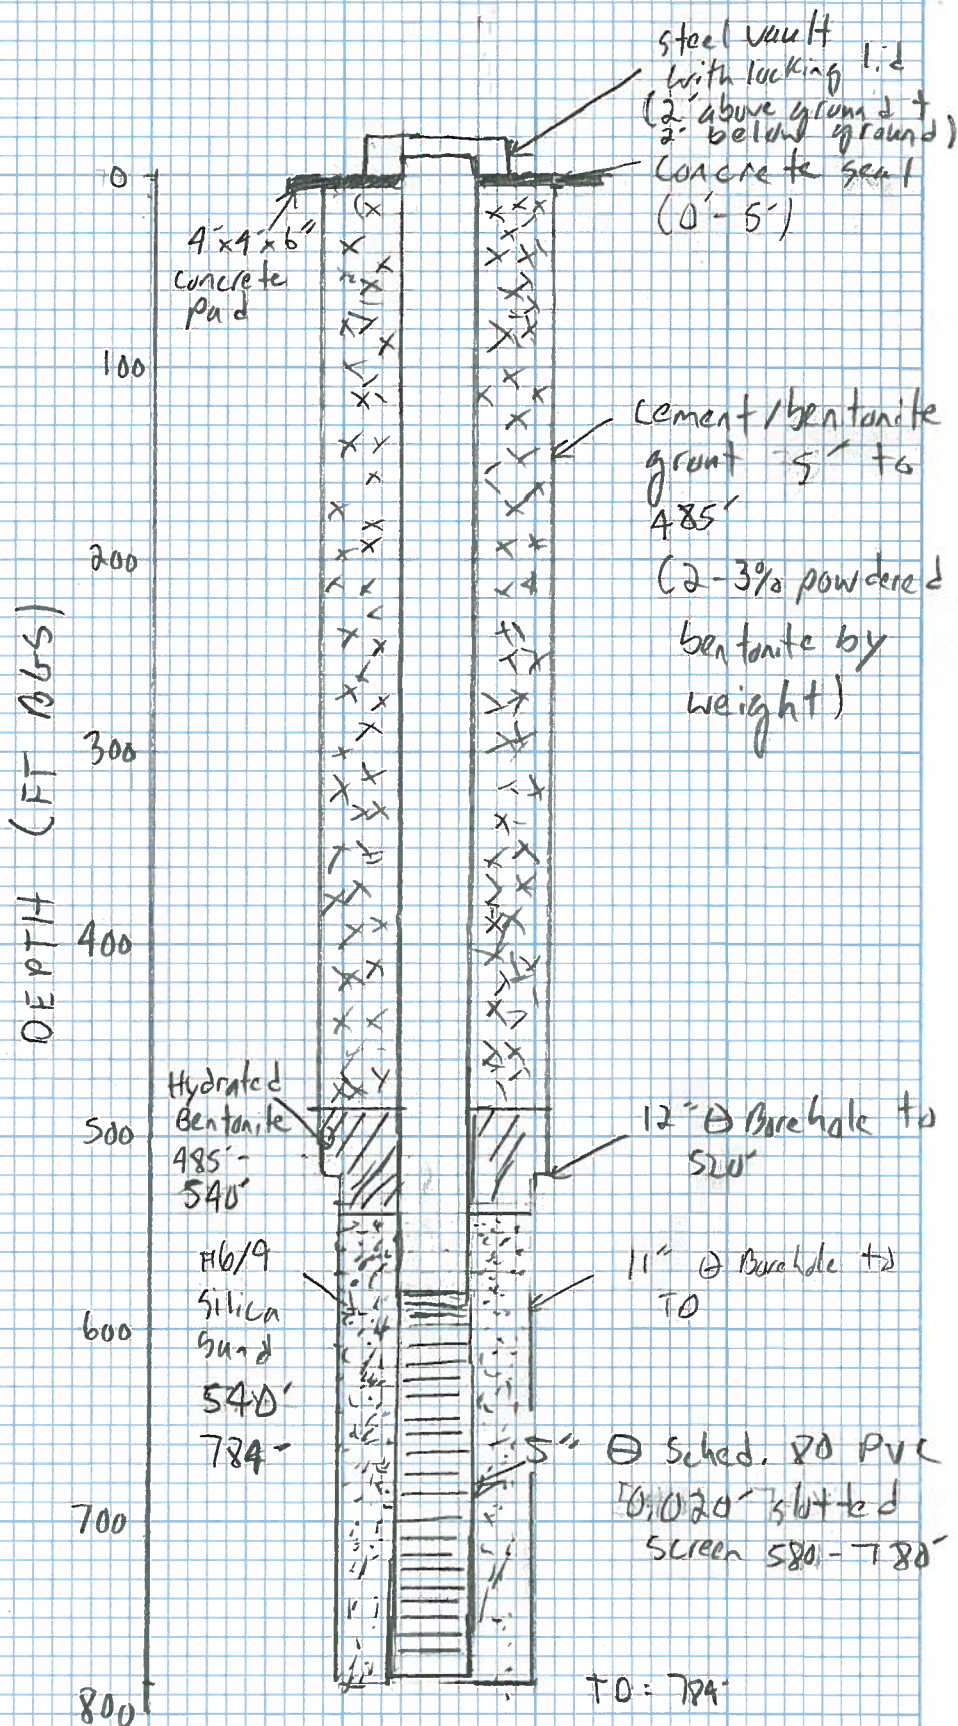 steel vault
with locking lid
(2' above ground +
2' below ground)
Concrete seal
(0'-5')
4'x4'x6"
Concrete
Pad
Cement/bentonite
grout 5' to
485'
(2-3% powdered
bentonite by
weight)
DEPTH (FT BGS)
0
100
200
300
400
500
600
700
800
Hydrated
Bentonite
485'-
540'
12" Θ Borehole to
520'
#6/9
Silica
Sand
540'
784'
11" Θ Borehole to
TD
5" Θ Sched. 80 PVC
0.020" slotted
Screen 580-780'
TD = 784'